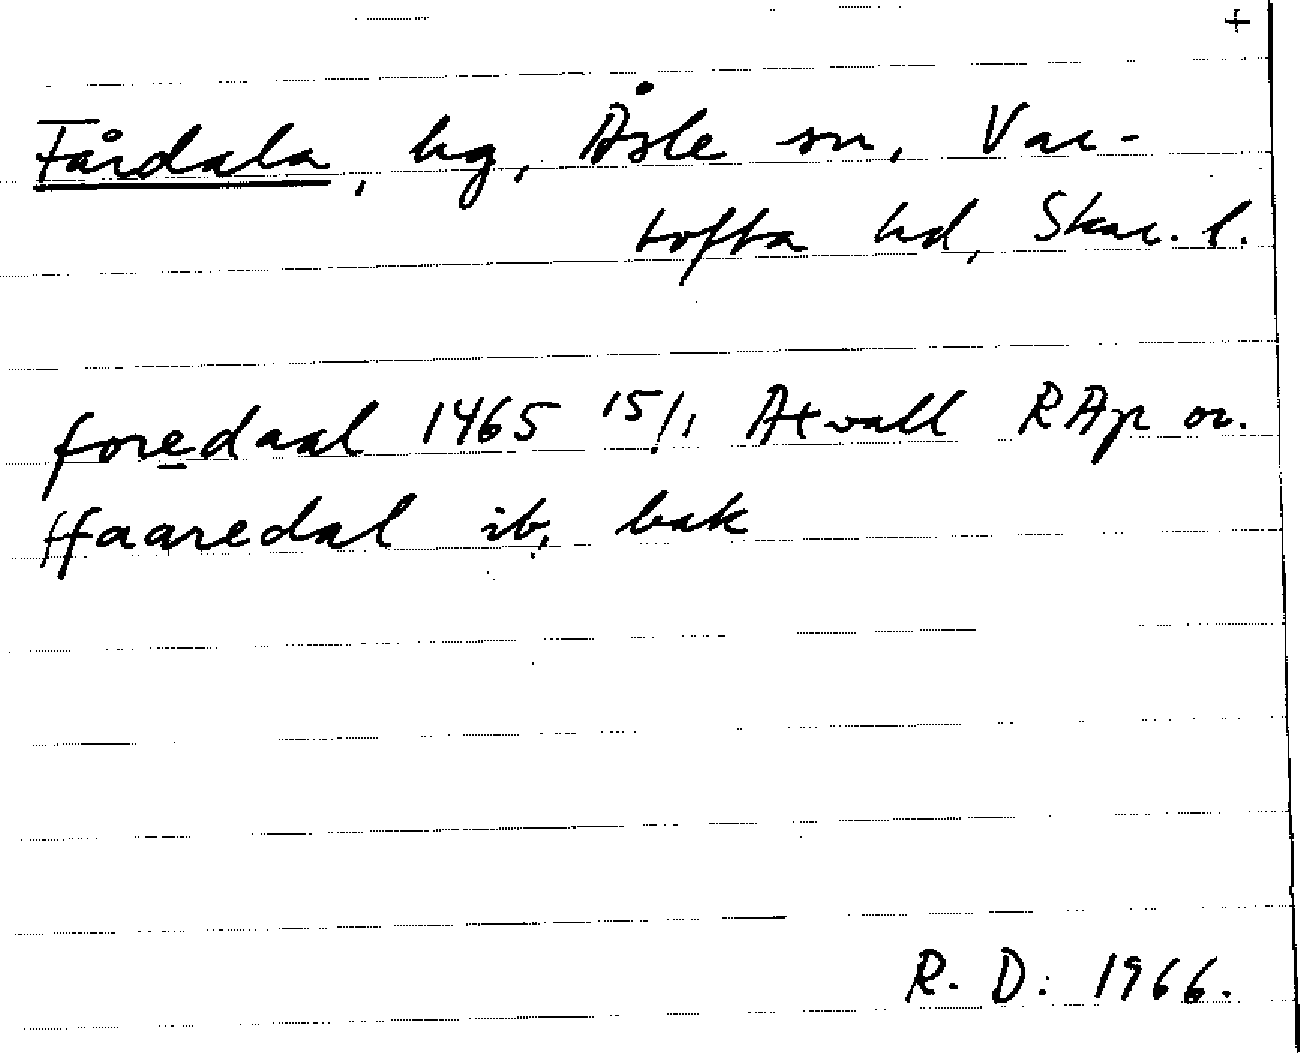 +
Fårdala, hg, Åsle sn, Var-
tofta hd, Skar. l.
foredaal 1465 15/1 Axvall RAp or.
ffaaredal ib, bak
R. D: 1966.